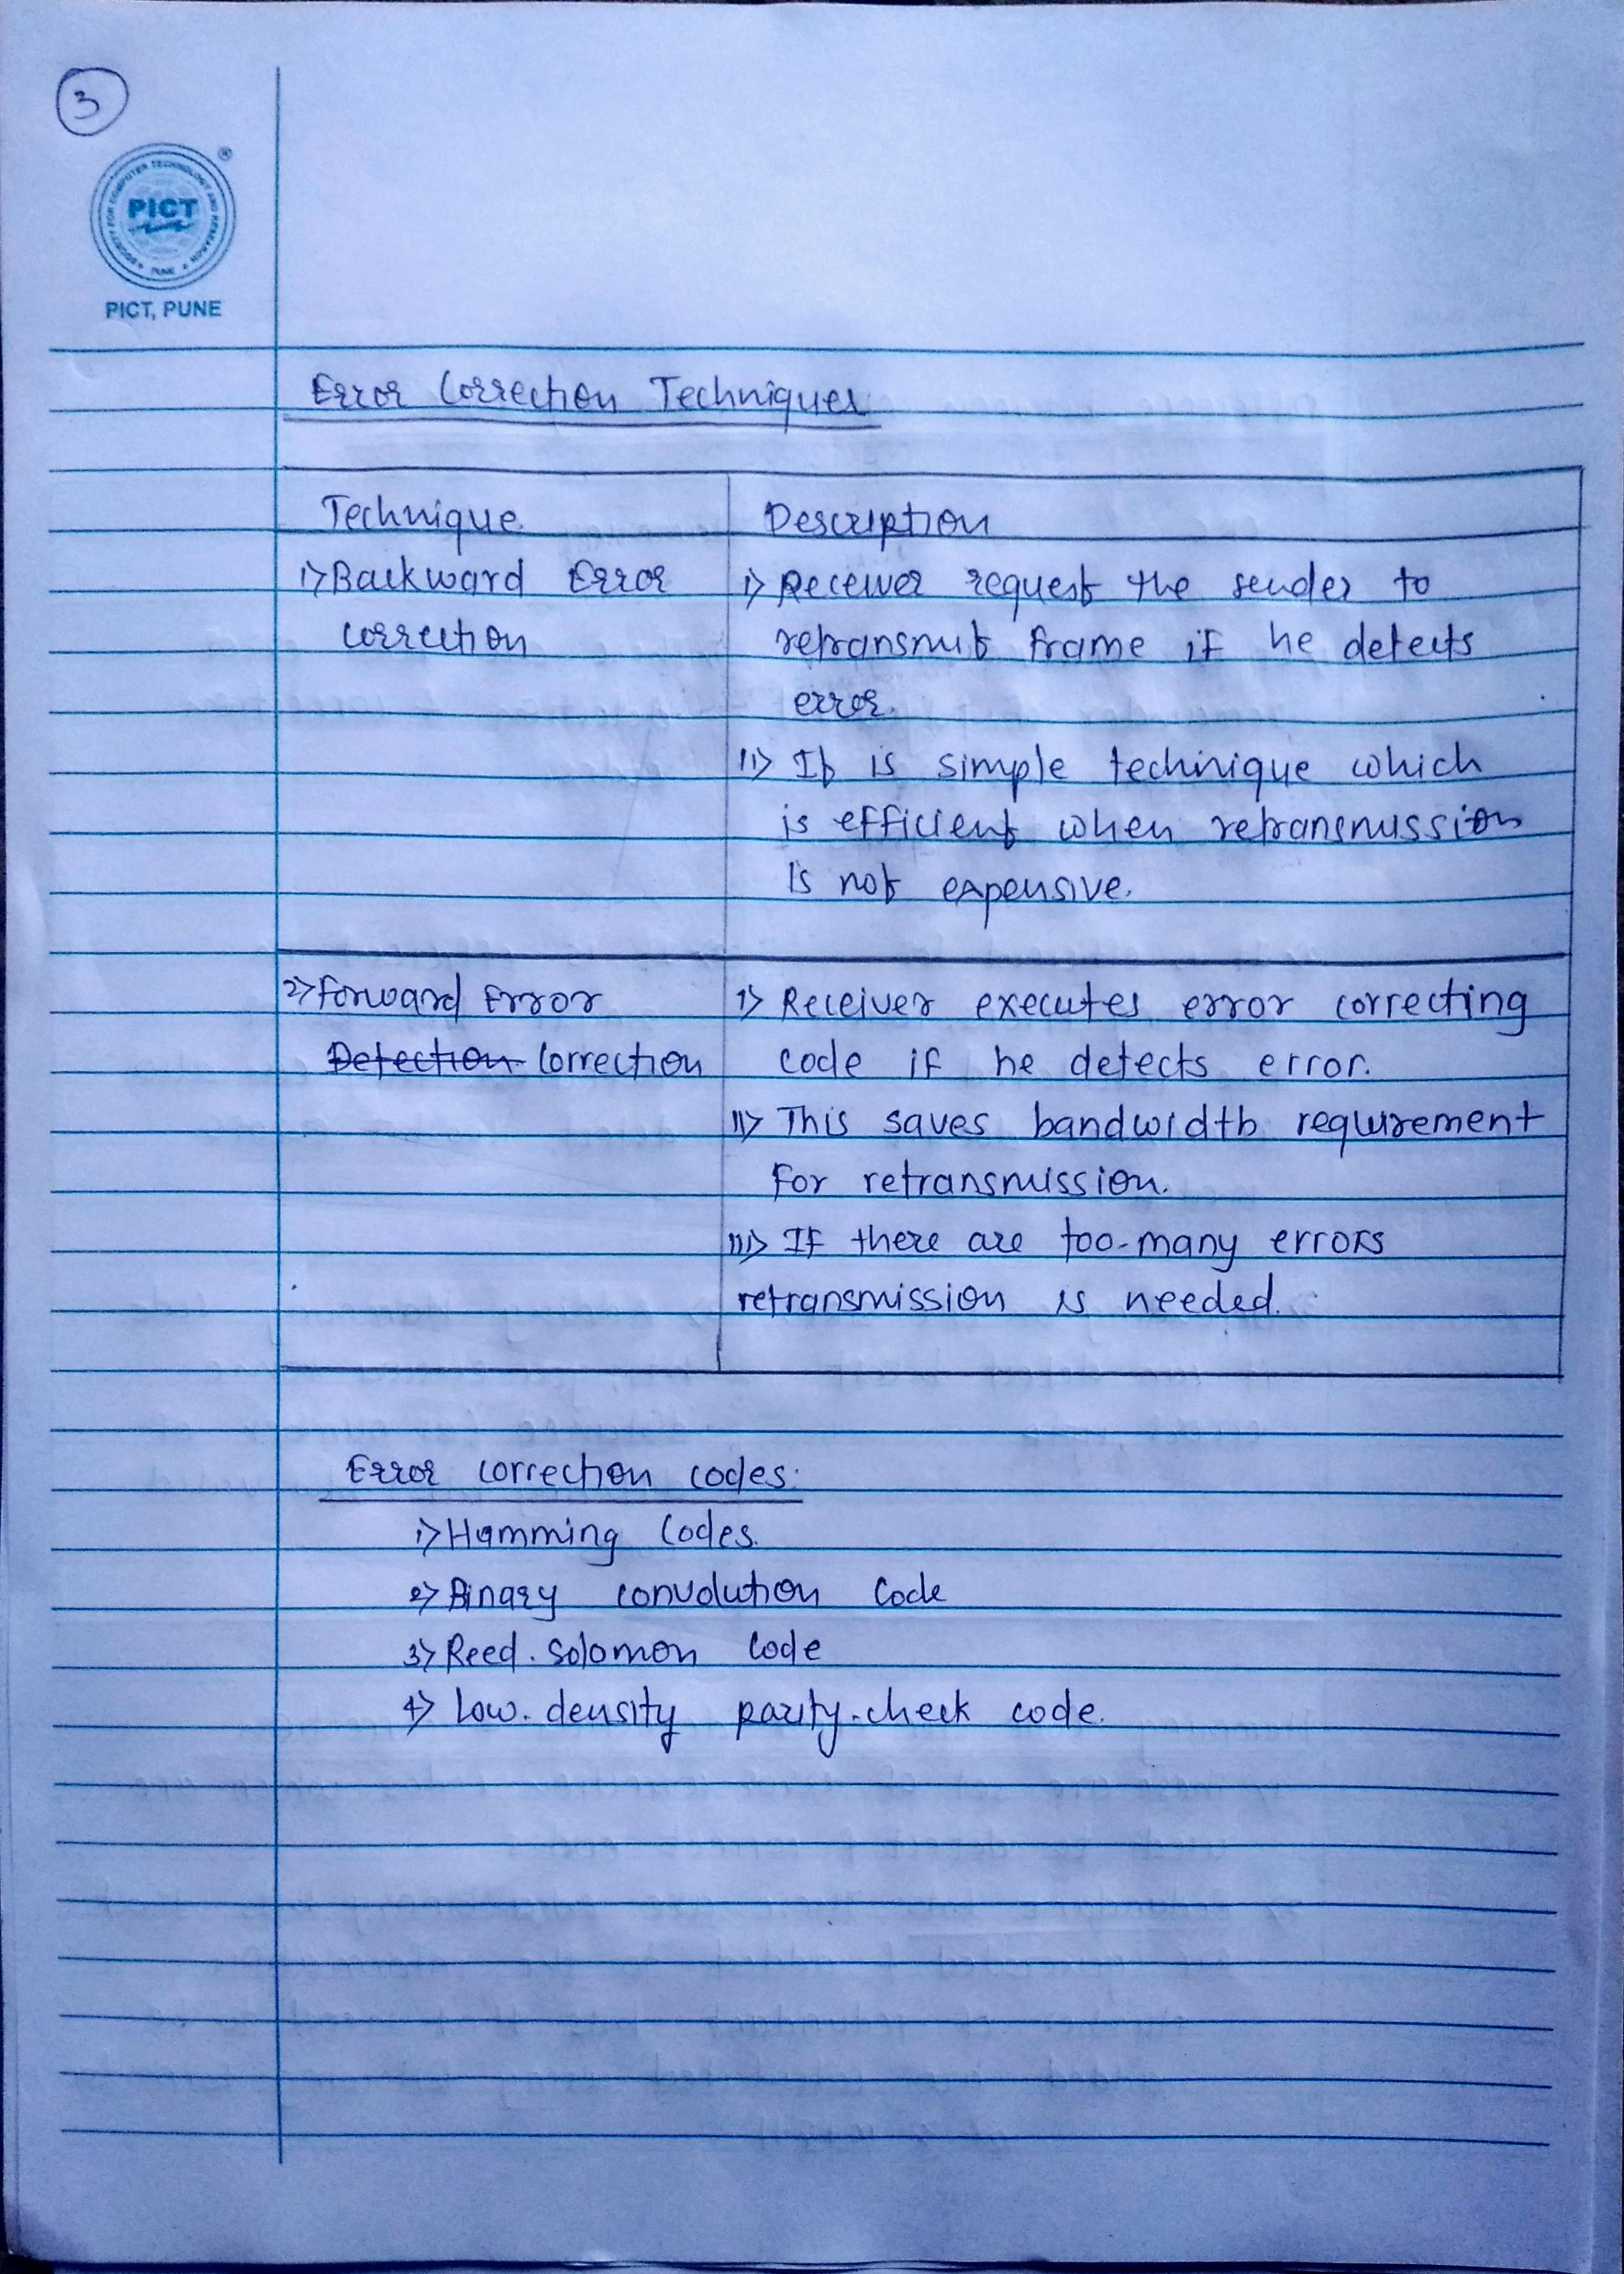 3
SOCIETY FOR COMPUTER TECHNOLOGY AND RESEARCH
PICT
PUNE
®
PICT, PUNE
Error Correction Techniques
Technique. Description
1> Backward Error i> Receiver request the sender to
correction retransmit frame if he detects
error.
ii> It is simple technique which
is efficient when retransmission
is not expensive.
2> Forward Error i> Receiver executes error correcting
Detection Correction code if he detects error.
ii> This saves bandwidth requirement
for retransmission.
iii> If there are too-many errors
retransmission is needed.
Error correction codes:
1> Hamming Codes.
2> Binary convolution Code
3> Reed-Solomon Code
4> Low-density parity-check code.